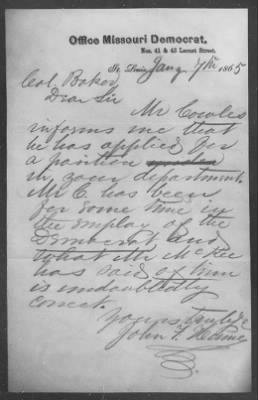 Office Missouri Democrat,
Nos. 41 & 43 Locust Street.
St. Louis, Jany 7th 1865
Col. Baker
Dear Sir
Mr Cowles
informs me that
he has applied for
a position
in your department.
Mr C. has been
for some time in
the employ of the
Democrat and
what Mr McKee
has said of him
is undoubtedly
correct.
Yours truly
John F.